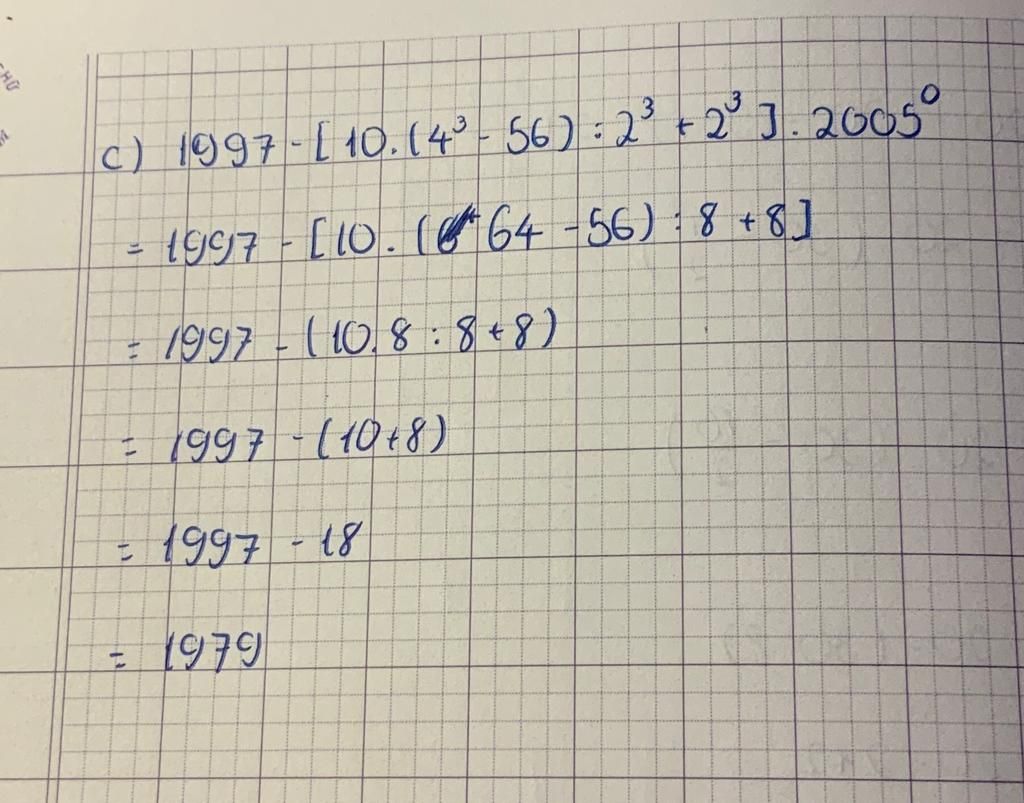 c) 1997 - [10.(4³ - 56) : 2³ + 2³] . 2005⁰
= 1997 - [10. (64 - 56) : 8 + 8]
= 1997 - (10.8 : 8 + 8)
= 1997 - (10+8)
= 1997 - 18
= 1979